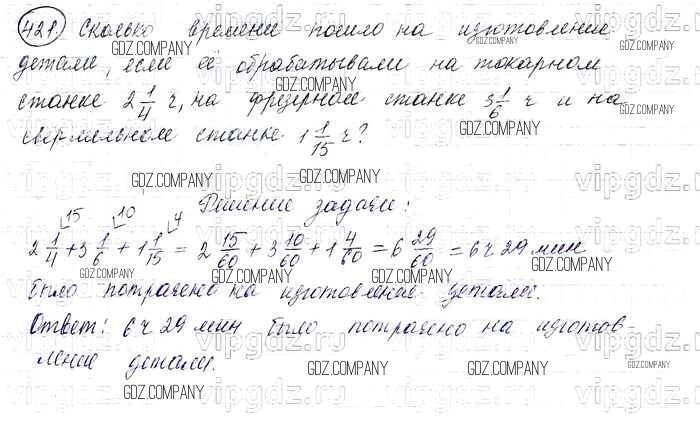 421. Сколько времени пошло на изготовление
детали, если её обрабатывали на токарном
станке 2 1/4 ч, на фрезерном станке 3 1/6 ч и на
сверлильном станке 1 1/15 ч?
Решение задачи:
15 10 4
2 1/4 + 3 1/6 + 1 1/15 = 2 15/60 + 3 10/60 + 1 4/60 = 6 29/60 = 6 ч 29 мин
было потрачено на изготовление детали.
Ответ: 6 ч 29 мин было потрачено на изготов-
ление детали.
GDZ.COMPANY
vipgdz.ru